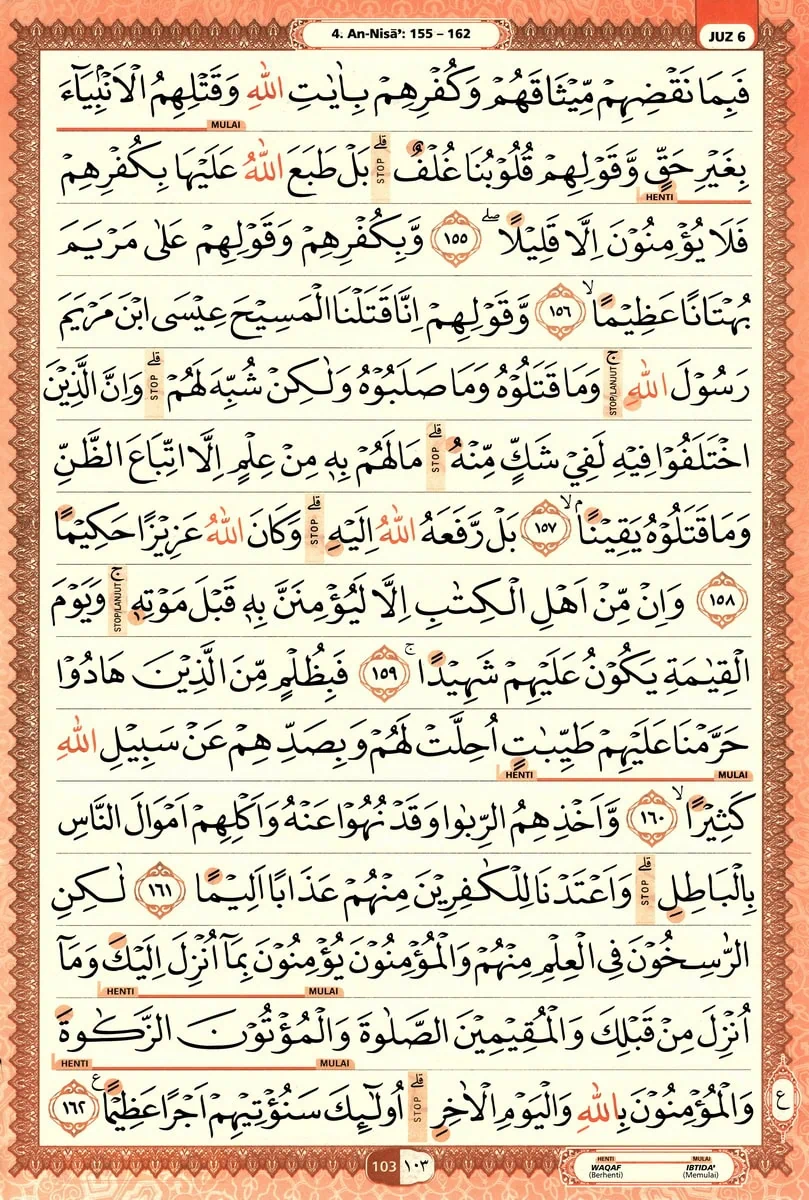 4. An-Nisā': 155 – 162
JUZ 6
فَبِمَا نَقْضِهِمْ مِّيْثَاقَهُمْ وَكُفْرِهِمْ بِاٰيٰتِ اللّٰهِ وَقَتْلِهِمُ الْاَنْۢبِيَاۤءَ
MULAI
بِغَيْرِ حَقٍّ وَّقَوْلِهِمْ قُلُوْبُنَا غُلْفٌ ۗ STOP بَلْ طَبَعَ اللّٰهُ عَلَيْهَا بِكُفْرِهِمْ
HENTI
فَلَا يُؤْمِنُوْنَ اِلَّا قَلِيْلًا ۖ ١٥٥ وَّبِكُفْرِهِمْ وَقَوْلِهِمْ عَلٰى مَرْيَمَ
بُهْتَانًا عَظِيْمًاۙ ١٥٦ وَّقَوْلِهِمْ اِنَّا قَتَلْنَا الْمَسِيْحَ عِيْسَى ابْنَ مَرْيَمَ
رَسُوْلَ اللّٰهِ ۚ STOP/LANJUT وَمَا قَتَلُوْهُ وَمَا صَلَبُوْهُ وَلٰكِنْ شُبِّهَ لَهُمْ ۗ STOP وَاِنَّ الَّذِيْنَ
اخْتَلَفُوْا فِيْهِ لَفِيْ شَكٍّ مِّنْهُ ۗ STOP مَا لَهُمْ بِهٖ مِنْ عِلْمٍ اِلَّا اتِّبَاعَ الظَّنِّ
وَمَا قَتَلُوْهُ يَقِيْنًاۢ ۙ ١٥٧ بَلْ رَّفَعَهُ اللّٰهُ اِلَيْهِ ۗ STOP وَكَانَ اللّٰهُ عَزِيْزًا حَكِيْمًا
١٥٨ وَاِنْ مِّنْ اَهْلِ الْكِتٰبِ اِلَّا لَيُؤْمِنَنَّ بِهٖ قَبْلَ مَوْتِهٖ ۚ STOP/LANJUT وَيَوْمَ
الْقِيٰمَةِ يَكُوْنُ عَلَيْهِمْ شَهِيْدًاۚ ١٥٩ فَبِظُلْمٍ مِّنَ الَّذِيْنَ هَادُوْا
حَرَّمْنَا عَلَيْهِمْ طَيِّبٰتٍ اُحِلَّتْ لَهُمْ وَبِصَدِّهِمْ عَنْ سَبِيْلِ اللّٰهِ
HENTI MULAI
كَثِيْرًاۙ ١٦٠ وَّاَخْذِهِمُ الرِّبٰوا وَقَدْ نُهُوْا عَنْهُ وَاَكْلِهِمْ اَمْوَالَ النَّاسِ
بِالْبَاطِلِ ۗ STOP وَاَعْتَدْنَا لِلْكٰفِرِيْنَ مِنْهُمْ عَذَابًا اَلِيْمًا ١٦١ لٰكِنِ
الرّٰسِخُوْنَ فِى الْعِلْمِ مِنْهُمْ وَالْمُؤْمِنُوْنَ يُؤْمِنُوْنَ بِمَآ اُنْزِلَ اِلَيْكَ وَمَآ
HENTI MULAI
اُنْزِلَ مِنْ قَبْلِكَ وَالْمُقِيْمِيْنَ الصَّلٰوةَ وَالْمُؤْتُوْنَ الزَّكٰوةَ
HENTI MULAI
وَالْمُؤْمِنُوْنَ بِاللّٰهِ وَالْيَوْمِ الْاٰخِرِ ۗ STOP اُولٰۤىِٕكَ سَنُؤْتِيْهِمْ اَجْرًا عَظِيْمًا ع ١٦٢
ع
103 ١٠٣
HENTI MULAI
WAQAF IBTIDA'
(Berhenti) (Memulai)